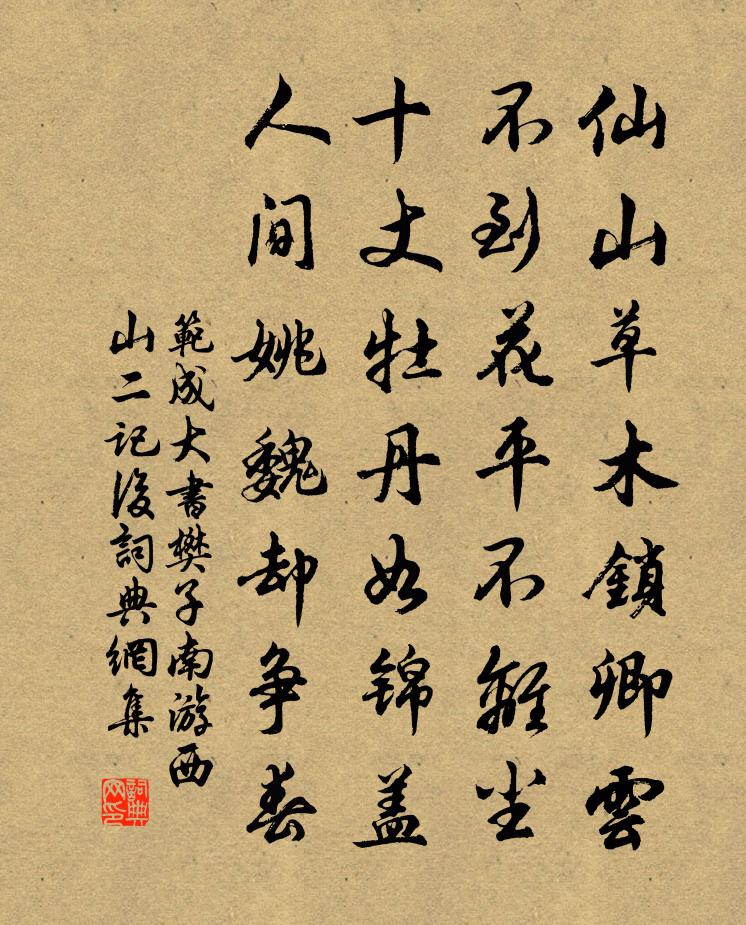 仙山草木鎖卿雲
不到花平不離塵
十丈牡丹如錦盖
人間姚魏却争春
範成大書樊子南游西
山二記後詞典網集
詞典网印